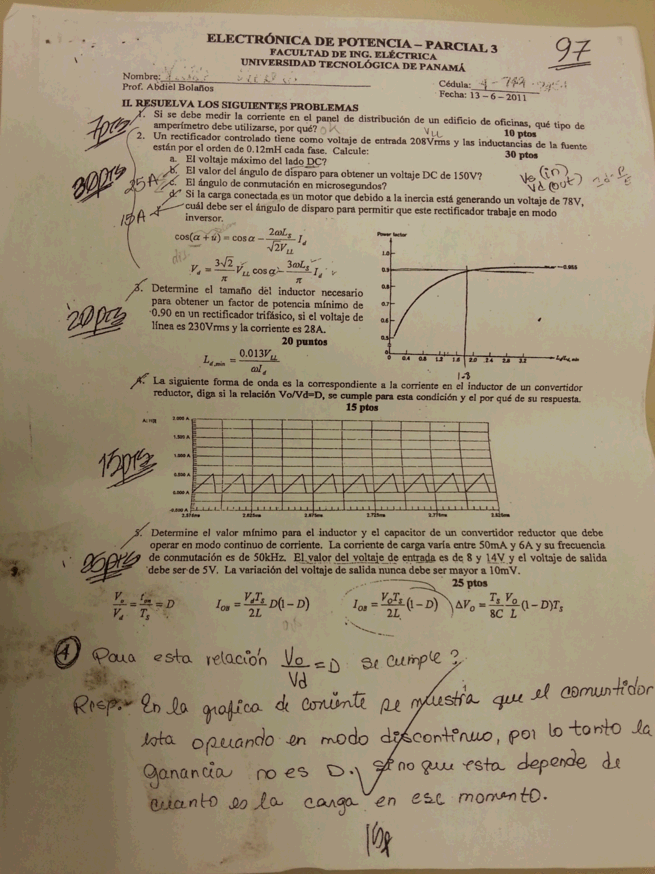 ELECTRÓNICA DE POTENCIA – PARCIAL 3
FACULTAD DE ING. ELÉCTRICA
UNIVERSIDAD TECNOLÓGICA DE PANAMÁ
97
Nombre:
Cédula:
Prof. Abdiel Bolaños
Fecha: 13 – 6 – 2011
II. RESUELVA LOS SIGUIENTES PROBLEMAS
7pts
1. Si se debe medir la corriente en el panel de distribución de un edificio de oficinas, qué tipo de
amperímetro debe utilizarse, por qué? ok 10 ptos
VLL
2. Un rectificador controlado tiene como voltaje de entrada 208Vrms y las inductancias de la fuente
están por el orden de 0.12mH cada fase. Calcule: 30 ptos
30pts
a. El voltaje máximo del lado DC?
b. El valor del ángulo de disparo para obtener un voltaje DC de 150V?
25A
c. El ángulo de conmutación en microsegundos?
(in)
Vd (out)
d. Si la carga conectada es un motor que debido a la inercia está generando un voltaje de 78V,
15A
cuál debe ser el ángulo de disparo para permitir que este rectificador trabaje en modo
inversor.
cos(α + u) = cos α − 2ωLs/√2VLL Id
Vd = 3√2/π VLL cos α − 3ωLs/π Id
Power factor
1.0
0.9
0.955
0.8
0.7
0.6
0.5
0
0 0.4 0.8 1.2 1.6 2.0 2.4 2.8 3.2 Ls/Ld,min
1.8
20pts
3. Determine el tamaño del inductor necesario
para obtener un factor de potencia mínimo de
0.90 en un rectificador trifásico, si el voltaje de
línea es 230Vrms y la corriente es 28A.
20 puntos
Ld,min = 0.013VLL/ωId
4. La siguiente forma de onda es la correspondiente a la corriente en el inductor de un convertidor
reductor, diga si la relación Vo/Vd=D, se cumple para esta condición y el por qué de su respuesta.
15 ptos
15pts
2.000 A
1.500 A
1.000 A
0.500 A
0.000 A
5. Determine el valor mínimo para el inductor y el capacitor de un convertidor reductor que debe
operar en modo continuo de corriente. La corriente de carga varía entre 50mA y 6A y su frecuencia
25pts
de conmutación es de 50kHz. El valor del voltaje de entrada es de 8 y 14V y el voltaje de salida
debe ser de 5V. La variación del voltaje de salida nunca debe ser mayor a 10mV.
25 ptos
Vo/Vd = ton/Ts = D IOB = VdTs/2L D(1−D) IOB = VoTs/2L (1−D) ΔVo = Ts/8C Vo/L (1−D)Ts
4 Para esta relación Vo/Vd = D se cumple?
Resp.- En la grafica de corriente se muestra que el comuntidor
esta operando en modo discontinuo, por lo tanto la
Ganancia no es D. sino que esta depende de
cuanto es la carga en ese momento.